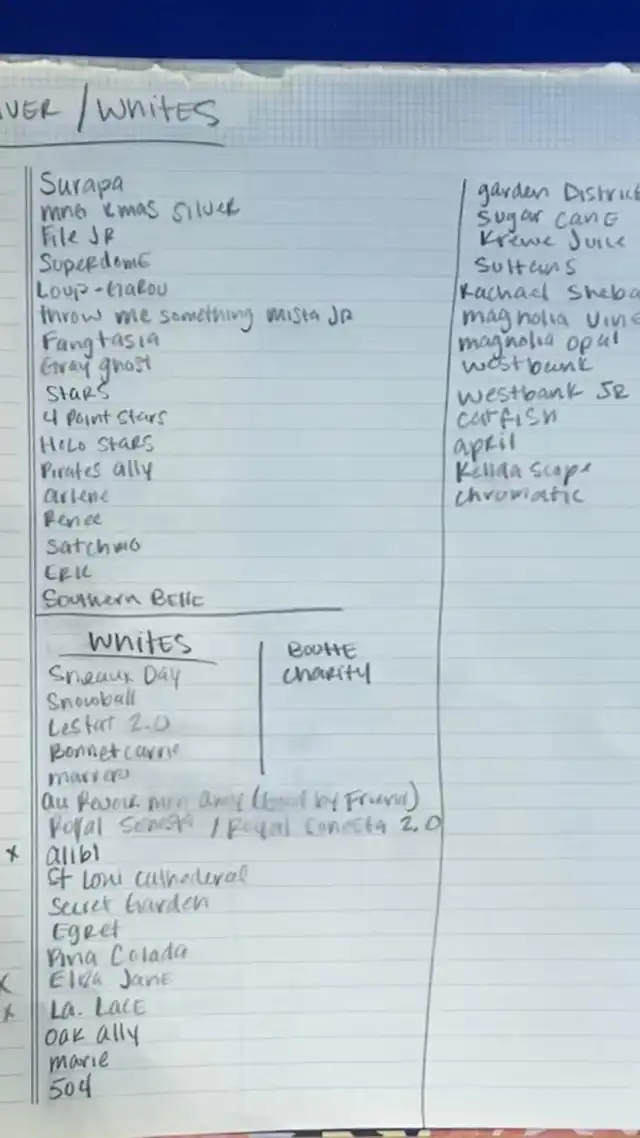 / WHITES
Surapa
mng xmas Silver
File JR
SuperdomE
Loup-Garou
throw me something mista JR
Fangtasia
Gray ghost
Stars
4 Point Stars
HOLO STARS
Pirates ally
arlene
Renee
Satchmo
ERIC
Southern BEllE
garden District
Sugar canE
Krewe Juice
Sultans
Rachael Sheba
magnolia VinE
magnolia opal
westbank
Westbank JR
catfish
april
Kelida Scope
chromatic
WHITES
Sneaux Day
Snowball
Lestat 2.0
Bonnet carrie
marrero
au Revoir mon (Good by Friend)
Royal Sonesta / Royal Sonesta 2.0
x alibi
St Loui cathederal
Secret Garden
Egret
Pina Colada
x Eliza Jane
x La. LacE
oak ally
marie
504
BOUTTE
charity